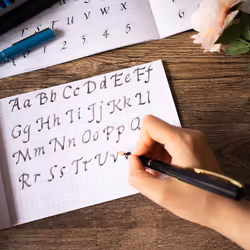 r s t u v w x
1 2 3 4 5 6 7 8
Aa Bb Cc Dd Ee Ff
Gg Hh Ii Jj Kk Ll
Mm Nn Oo Pp Q
Rr Ss Tt Uu v